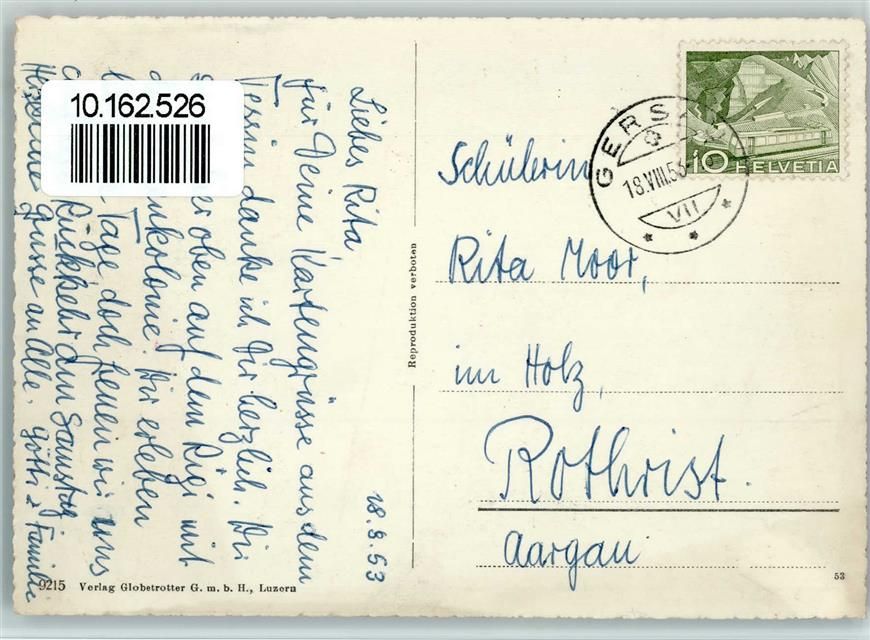 18.8.53
Liebes Rita,
für Deine Kartengrüsse aus dem
Tessin danke ich Dir herzlich. Wir
oben auf dem Rigi mit
kolonie. Wir erleben
Tage doch freuen wir uns
Rückkehr am Samstag
Grüsse an Alle. Götti & Familie
10.162.526
Reproduktion verboten
9215 Verlag Globetrotter G. m. b. H., Luzern
10 HELVETIA
GERS
18.VIII.53
VII
Schülerin
Rita Moor,
im Holz,
Rothrist.
Aargau
53